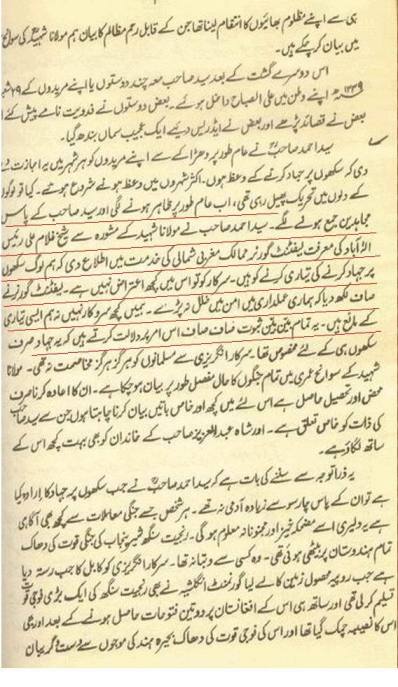 ہی سے اپنے مظلوم بھائیوں کا انتقام لینا تھا جن کے قابل رحم مظالم کا بیان ہم مولانا شہید کی سوانح
میں بیان کر چکے ہیں۔
اس دوسرے گشت کے بعد سید صاحب معہ چند دوستوں یا اپنے مریدوں کے
۱۲۳۹ھ اپنے وطن میں علی الصباح داخل ہوئے۔ بعض دوستوں نے فدویت نامے پیش کئے
بعض نے قصائد پڑھے اور بعض نے ایڈریس دیئے ایک عجیب سماں بندھ گیا۔
سید احمد صاحب نے عام طور پر دھڑا کے سے اپنے مریدوں کو ہر شہر میں یہ اجازت دے
دی کہ سکھوں پر جہاد کرنے کے وعظ ہوں۔ اکثر شہروں میں وعظ ہونے شروع ہو گئے۔ کیا تو لوگوں
کے دلوں میں تحریک پھیل رہی تھی، اب عام طور پر ظاہر ہونے لگی اور سید صاحب کے پاس
مجاہدین جمع ہونے لگے۔ سید احمد صاحب نے مولانا شہید کے مشورہ سے شیخ غلام علی رئیس
الہ آباد کی معرفت لیفٹنٹ گورنر ممالک مغربی شمالی کی خدمت میں اطلاع دی کہ ہم لوگ سکھوں
پر جہاد کرنے کی تیاری کرنے کو ہیں۔ سرکار کو تو اس میں کچھ اعتراض نہیں ہے۔ لیفٹنٹ گورنر نے
صاف لکھ دیا کہ ہماری عملداری میں امن میں خلل نہ پڑے۔ ہمیں کچھ سروکار نہیں نہ ہم ایسی تیاری
کے مانع ہیں۔ یہ تمام بین بین ثبوت صاف صاف اس امر پر دلالت کرتے ہیں کہ یہ جہاد صرف
سکھوں ہی کے لئے مخصوص تھا۔ سرکار انگریزی سے مسلمانوں کو ہرگز ہرگز مخاصمت نہ تھی۔ مولانا
شہید کے سوانح عمری میں تمام جنگوں کا حال مفصل طور پر بیان ہو چکا ہے۔ ان کا اعادہ کرنا صرف
محض اور تحصیل حاصل ہے اس لئے میں کچھ اور خاص باتیں بیان کرنا چاہتا ہوں جن سے سید صاحب
کی ذات کو خاص تعلق ہے۔ اور شاہ عبدالعزیز صاحب کے خاندان کو بھی بہت کچھ اس کے
ساتھ لگاؤ ہے۔
یہ ذرا توجہ سے سننے کی بات ہے کہ سید احمد صاحب نے جب سکھوں پر جہاد کا ارادہ کیا
ہے تو ان کے پاس چار سو سے زیادہ آدمی نہ تھے۔ ہر شخص جسے جنگی معاملات سے کچھ بھی آگاہی
ہے یہ دلیری اسے مضحکہ خیز اور مجنونانہ معلوم ہوگی۔ رنجیت سنگھ شیر پنجاب کی جنگی قوت کی دھاک
تمام ہندوستان پر بیٹھی ہوئی تھی۔ وہ کسی سے دبتا نہ تھا۔ سرکار انگریزی کو کابل کا جب رستہ دیا
ہے جب روپیہ محصول زمین کا لے لیا گورنمنٹ انگلشیہ نے بھی رنجیت سنگھ کی ایک بڑی فوجی قوت
تسلیم کر لی تھی اور ساتھ ہی اس کے افغانستان پر دو تین فتوحات حاصل ہونے کے بعد اور بھی
اس کا نصیبہ چمک گیا تھا اور اس کی فوجی قوت کی دھاک بحیرہ ہند کی موجوں سے دست و گریبان